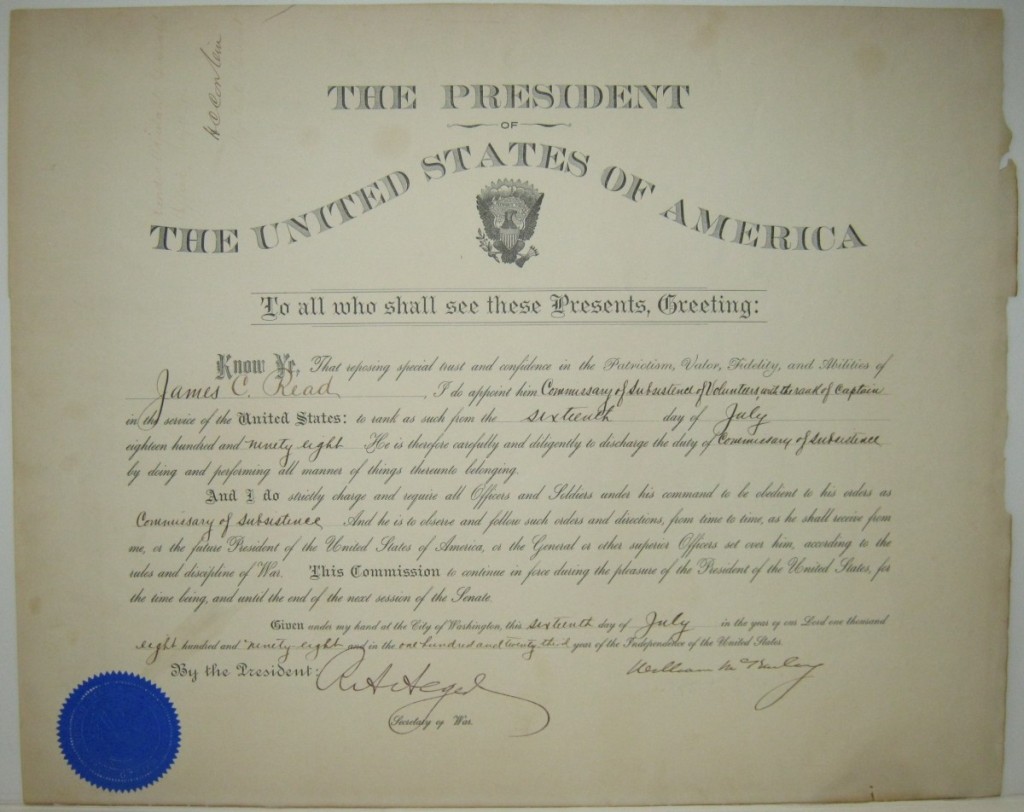 THE PRESIDENT
OF
THE UNITED STATES OF AMERICA
To all who shall see these Presents, Greeting:
Know Ye, That reposing special trust and confidence in the Patriotism, Valor, Fidelity, and Abilities of
James C. Read, I do appoint him Commissary of Subsistence of Volunteers, with the rank of Captain
in the service of the United States: to rank as such from the sixteenth day of July
eighteen hundred and ninety eight. He is therefore carefully and diligently to discharge the duty of Commissary of Subsistence
by doing and performing all manner of things thereunto belonging.
And I do strictly charge and require all Officers and Soldiers under his command to be obedient to his orders as
Commissary of Subsistence. And he is to observe and follow such orders and directions, from time to time, as he shall receive from
me, or the future President of the United States of America, or the General or other superior Officers set over him, according to the
rules and discipline of War. This Commission to continue in force during the pleasure of the President of the United States, for
the time being, and until the end of the next session of the Senate.
Given under my hand at the City of Washington, this sixteenth day of July in the year of our Lord one thousand
eight hundred and ninety eight and in the one hundred and twenty third year of the Independence of the United States.
By the President: William McKinley
Secretary of War.